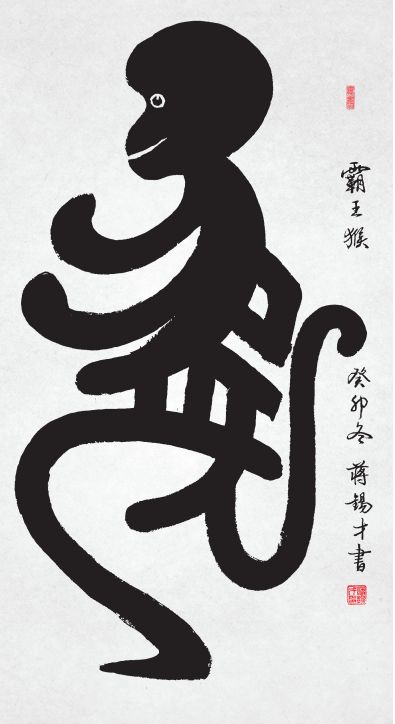 霸王猴
癸卯冬 蒋锡才書